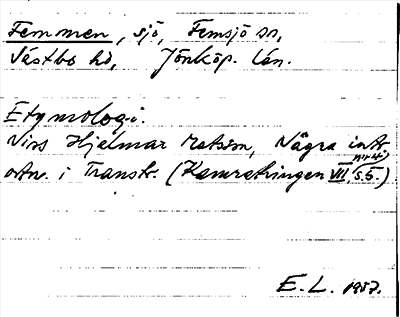 Femmen, sjö, Femsjö sn,
Västbo hd, Jönköp. län.
Etymologi.
Nils Hjalmar Matsén, Några intr.
ortn. i Transtr. (Kamratringen VII, s. 5.)
E. L. 1957.